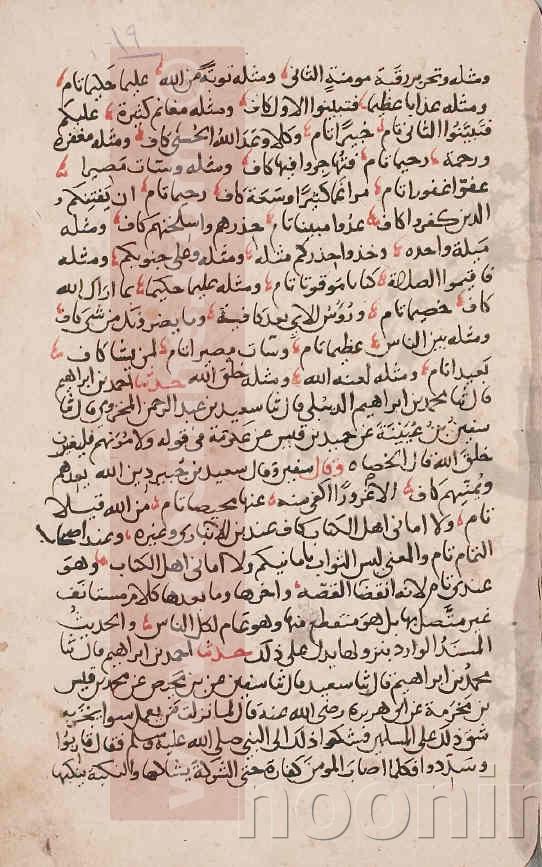 ١٩
ومثله وتحرير رقبة مومنة الثاني ومثله توبة من الله عليما حكيما تام
ومثله عذابا عظيما فتبينوا الاول كاف ومثله مغانم كثيرة عليكم
فتبينوا الثاني تام خبيرا تام وكلا وعد الله الحسنى كاف ومثله مغفرة
ورحمة رحيما تام فتهاجروا فيها كاف ومثله وسات مصيرا
عفوا غفورا تام مراغما كثيرا وسعة كاف رحيما تام ان يفتنكم
الذين كفروا كاف عدوا مبينا تام حذرهم واسلحتهم كاف ومثله
ميلة واحده وخذوا حذركم مثله ومثله وعلى جنوبكم ومثله
فاقيموا الصلاة كتابا موقوتا تام ومثله عليما حكيما بما اراك الله
كاف خصيما تام ورؤس الاي بعد كافية وما يضرونك من شى كاف
ومثله بين الناس عظيما تام وسات مصيرا تام لمن يشا كاف
بعيدا تام ومثله لعنه الله ومثله خلق الله حدثنا احمد بن ابراهيم
قال ثنا محمد بن ابراهيم الديبلي قال ثنا سعيد بن عبد الرحمن المخزومي قال ثنا
سفين بن عيينة عن حميد بن قيس عن عكرمة في قوله ولامرنهم فليغيرن
خلق الله قال الخصاء وقال سفين وقال سعيد بن جبير دين الله يعدهم
ويمنيهم كاف الا غرورا اكفى منه عنها محيصا تام من الله قيلا
تام ولا اماني اهل الكتاب كاف عند بن الانباري وغيره وعند اصحاب
التمام تام والمعنى ليس الثواب بامانيكم ولا اماني اهل الكتاب وهو
عندي تام لانه انقضا القصة واخرها وما بعدها كلام مستانف
غير متصل بها بل هو منقطع منها وهو عام لكل الناس والحديث
المسند الوارد بنزولها يدل على ذلك حدثنا احمد بن ابراهيم قال ثنا
محمد بن ابراهيم قال ثنا سعيد قال ثنا سفين عن بن محيصن عن محمد بن قيس
بن مخرمة عن ابي هريرة رضي الله عنه قال لما نزلت من يعمل سوا يجز به
شق ذلك على المسلمين فشكوا ذلك الى النبي صلى الله عليه وسلم فقال قاربوا
وسددوا فكلما اصاب المومن كفارة حتى الشوكة يشاكها والنكبة ينكبها
noonin